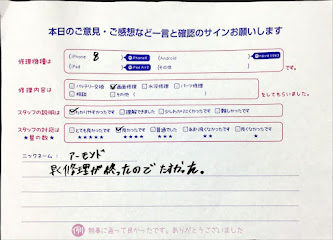 本日のご意見・ご感想など一言と確認のサインお願いします
修理機種は (iPhone 8 )iPhone修理 (Android )
(iPad )iPad修理 (その他 )です。
修理内容は □バッテリー交換 ☑画面修理 □水没修理 □パーツ修理
□相談 □その他( )をしてもらいました。
スタッフの説明は ☑わかりやすかったです □理解できました □少しわかりにくかったです □難しかったです
スタッフの対応は □とても良かったです ☑良かったです □普通でした □あまり良くなかったです □良くなかったです
★星の数★ ★★★★★ ★★★★ ★★★ ★★ ★
ニックネーム： アーモンド
早く修理が終ったのでたすかった。
物事に直って良かったです。ありがとうございました